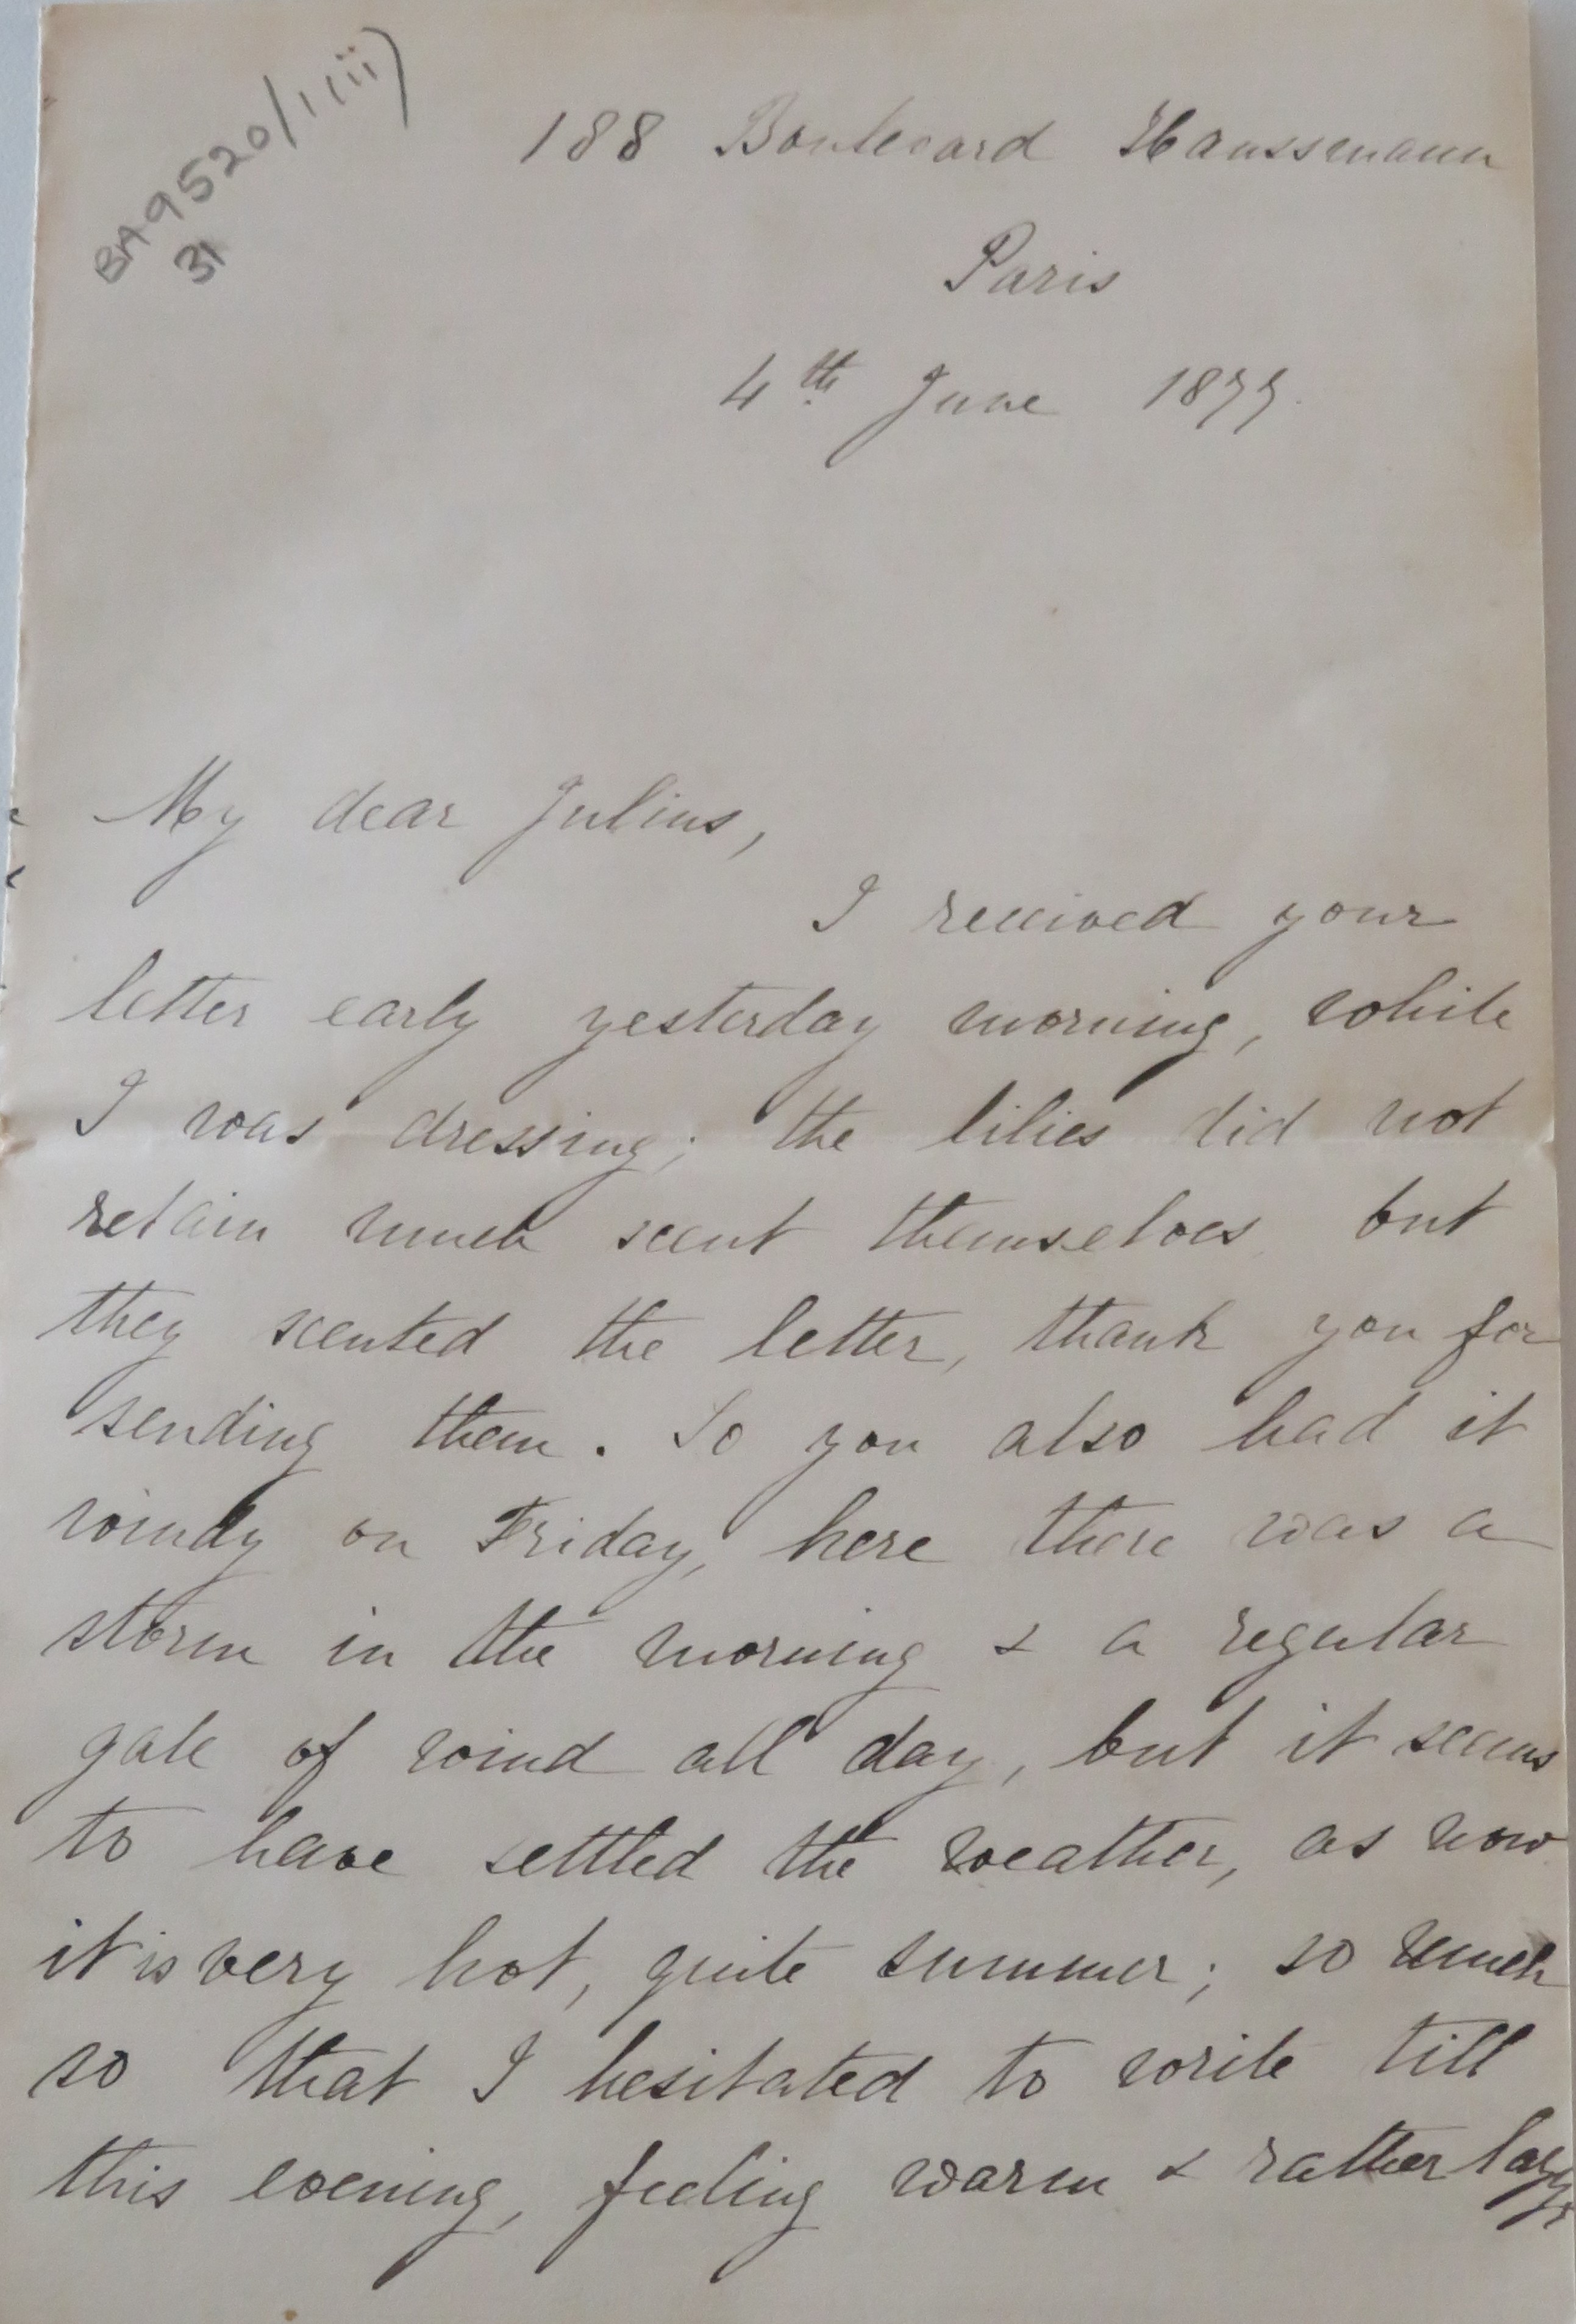 BA9520/1(ii)
31
188 Boulevard Haussmann
Paris
4th June 1877.
My dear Julius,
I received your
letter early yesterday morning, while
I was dressing; the lilies did not
retain much scent themselves but
they scented the letter, thank you for
sending them. So you also had it
windy on Friday, here there was a
storm in the morning & a regular
gale of wind all day, but it seems
to have settled the weather, as now
it is very hot, quite summer; so much
so that I hesitated to write till
this evening, feeling warm & rather lazy,